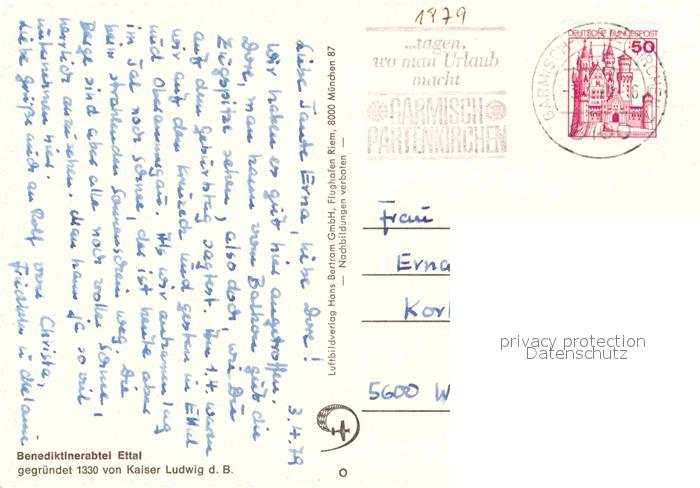 1979
...tagen,
wo man Urlaub
macht
GARMISCH
PARTENKIRCHEN
DEUTSCHE BUNDESPOST
50
GARMISCH-
3.4.79
Liebe Tante Erna, liebe Dore!
Wir haben es gut hier angetroffen,
Dore, man kann vom Balkon gut die
Zugspitze sehen, also doch, wie Du
auf dem Geburtstag sagtest. Am 1.4. waren
wir auf dem und gestern in Ettal
und Oberammergau. Als wir ankamen, lag
im Tal noch Schnee, der ist heute aber
beim strahlenden Sonnenschein weg. Die
Berge sind aber alle noch voller Schnee,
herrlich anzusehen. Man kann ja so viel
unternehmen hier.
Liebe Grüße auch an Rolf von Christa,
Luftbildverlag Hans Bertram GmbH, Flughafen Riem, 8000 München 87
— Nachbildungen verboten —
Frau
Erna
5600 W
privacy protection
Datenschutz
Benediktinerabtei Ettal
gegründet 1330 von Kaiser Ludwig d. B.